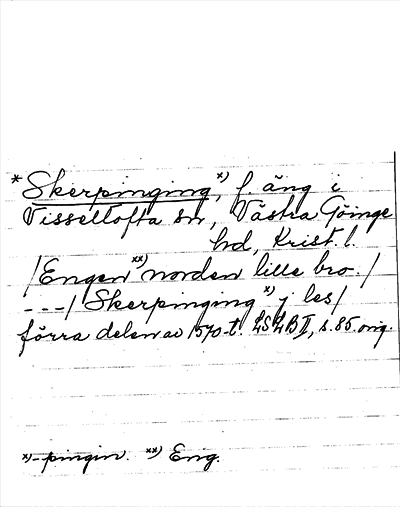 * Skerpinging, x) f. äng i
Vissellofta sn, Västra Göinge
hd, Krist. l.
/Engen xx) norden lille bro./
---/ Skerpinging x) j les/
förra delen av 1570-t. LSLB II, s. 85. orig.
x) -pingin. xx) Eng.